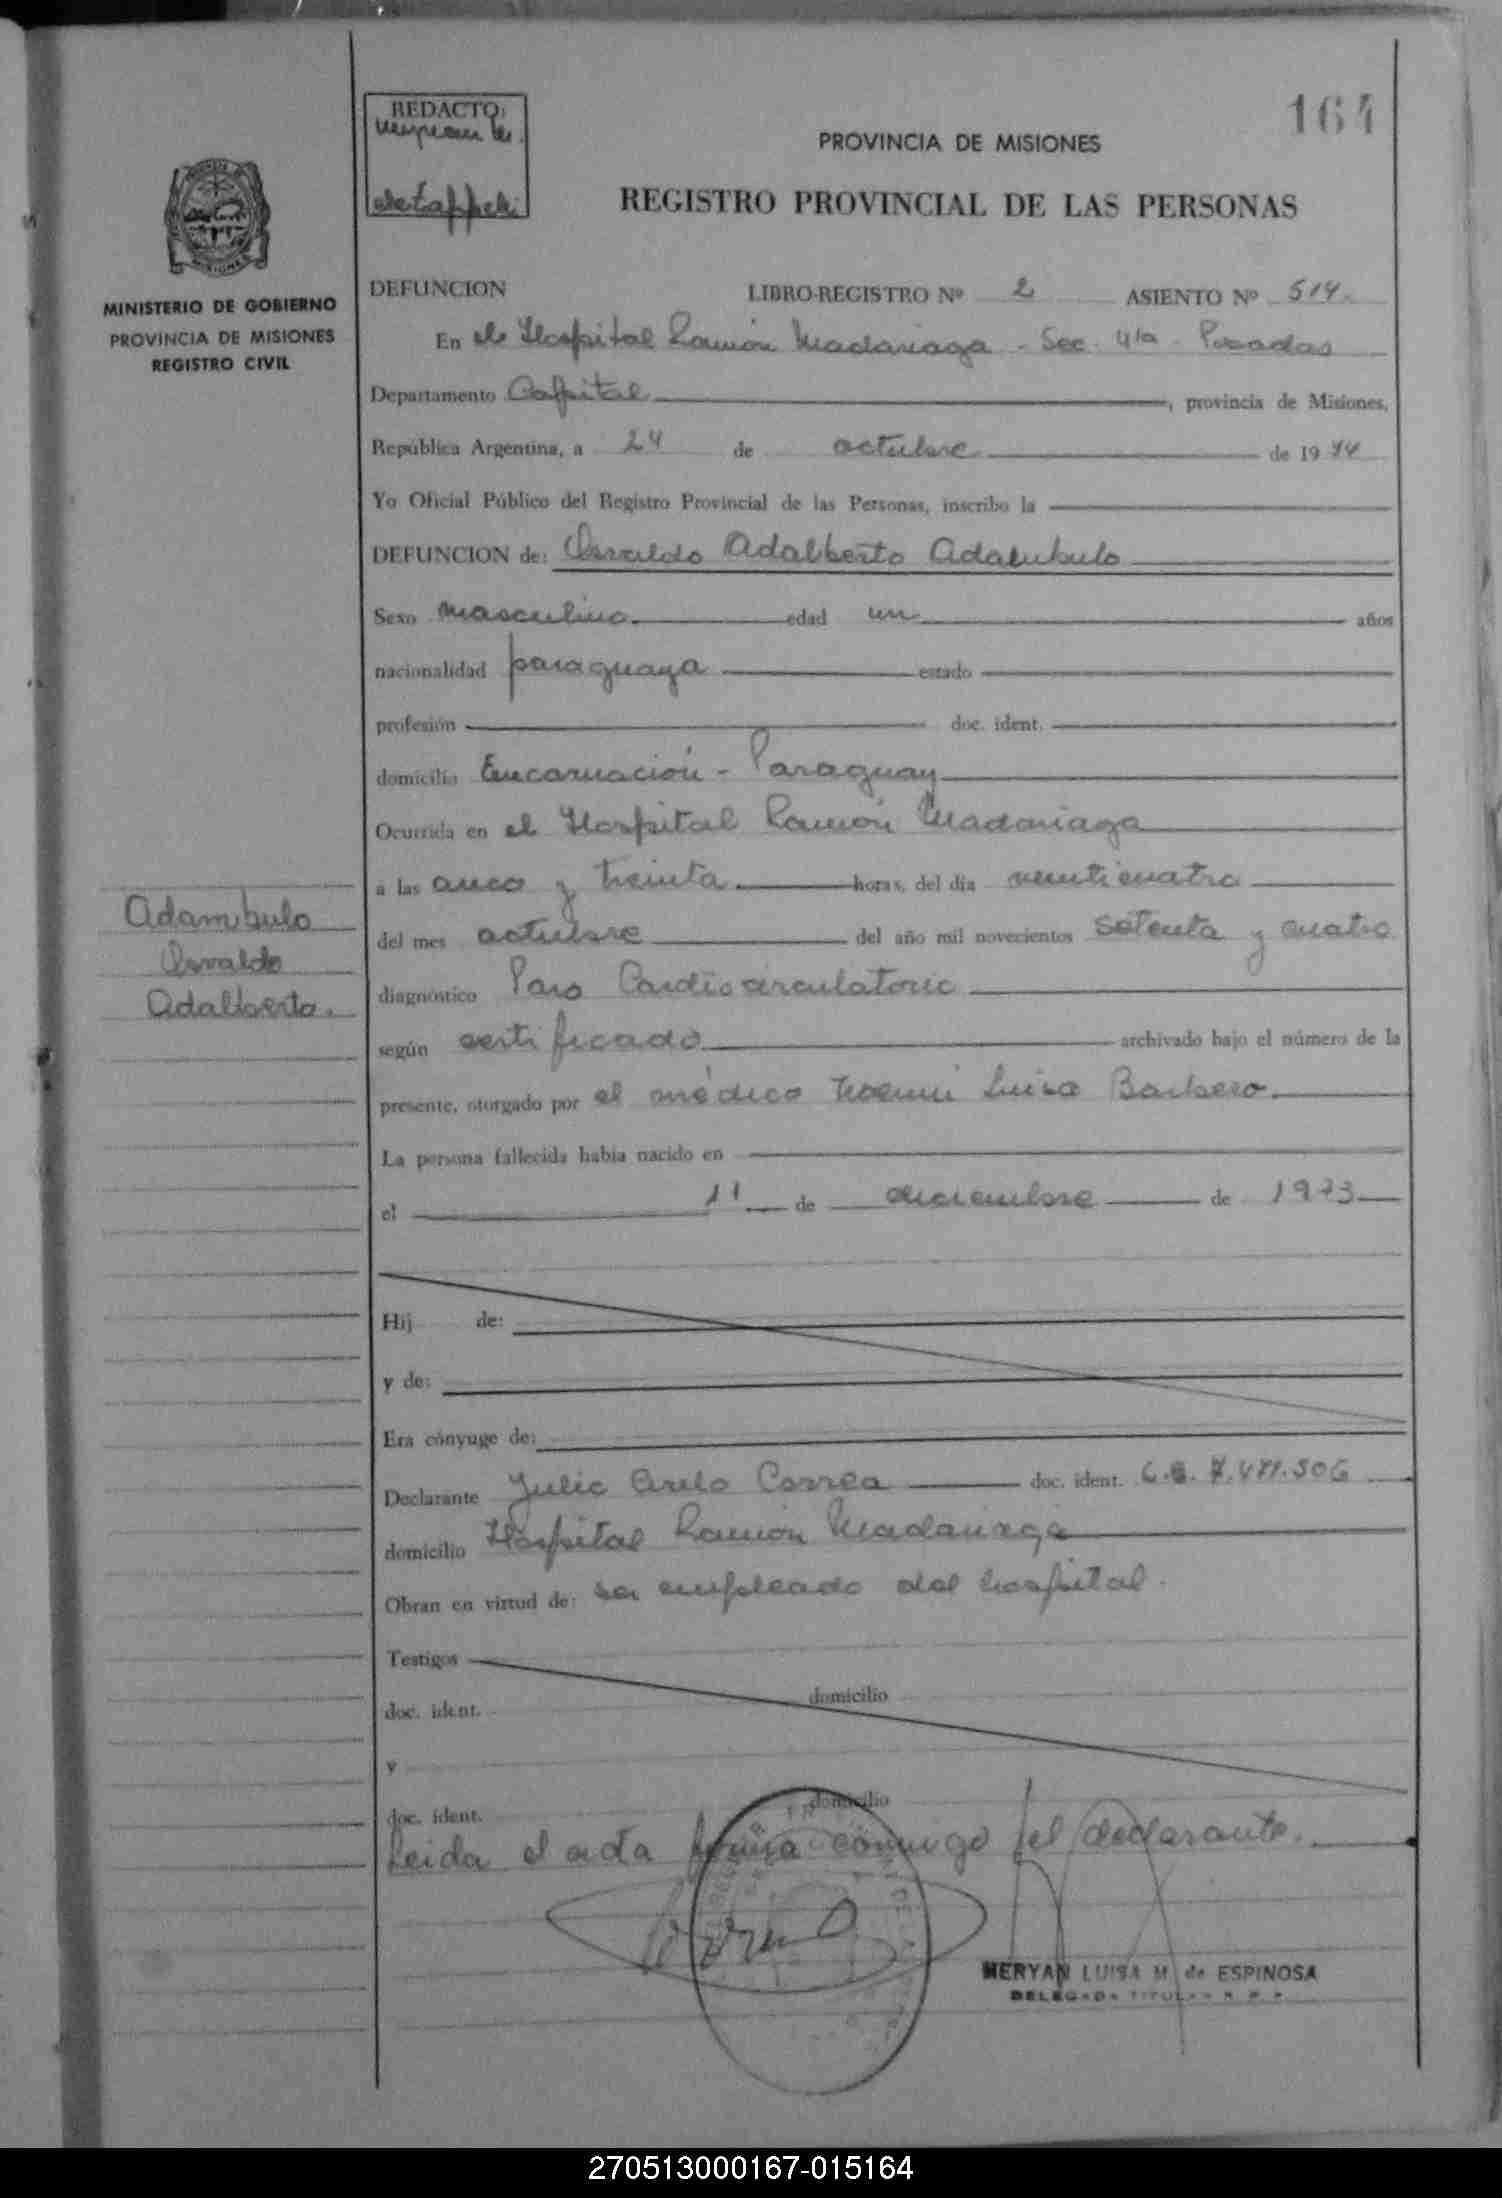 164
REDACTO:
PROVINCIA DE MISIONES
REGISTRO PROVINCIAL DE LAS PERSONAS
MINISTERIO DE GOBIERNO
PROVINCIA DE MISIONES
REGISTRO CIVIL
DEFUNCION LIBRO-REGISTRO Nº 2 ASIENTO Nº 514
En el Hospital Ramón Madariaga - Sec. 4ta - Posadas
Departamento Capital, provincia de Misiones,
República Argentina, a 24 de octubre de 1974
Yo Oficial Público del Registro Provincial de las Personas, inscribo la
DEFUNCION de: Osvaldo Adalberto Adambulo
Sexo masculino edad un años
nacionalidad paraguaya estado
profesión doc. ident.
domicilio Encarnación - Paraguay
Ocurrida en el Hospital Ramón Madariaga
a las cinco y treinta horas, del día veinticuatro
del mes octubre del año mil novecientos setenta y cuatro
diagnóstico Paro Cardiocirculatorio
según certificado archivado bajo el número de la
presente, otorgado por el médico Noemi Luisa Barbero.
La persona fallecida había nacido en
el 11 de diciembre de 1973
Adambulo
Osvaldo
Adalberto.
Hij de:
y de:
Era cónyuge de:
Declarante Julio Correa doc. ident. 7.471.506
domicilio Hospital Ramón Madariaga
Obran en virtud de: ser empleado del hospital.
Testigos
doc. ident. domicilio
y
doc. ident. domicilio
Leida el acta firma conmigo el declarante.
MERYAN LUISA M. de ESPINOSA
DELEGADA TITULAR R. P. P.
270513000167-015164